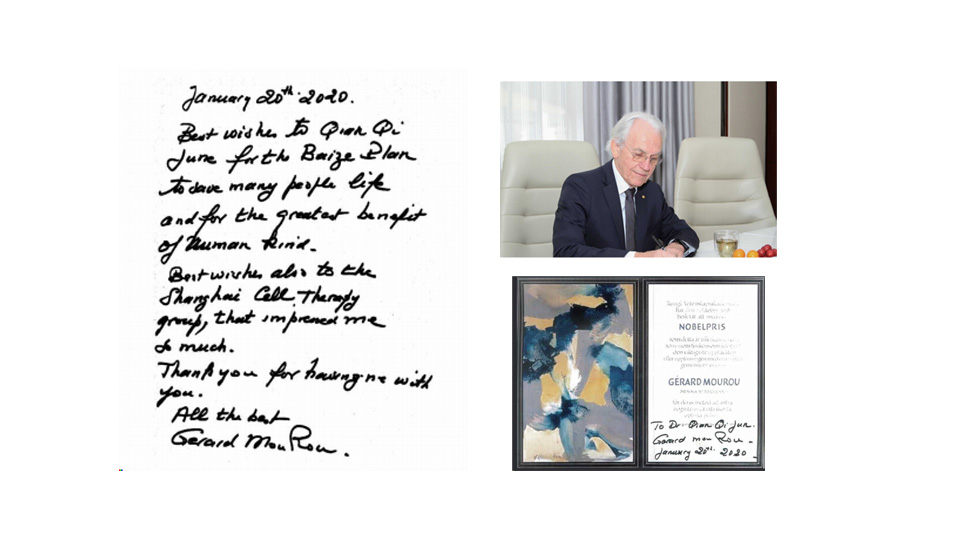 January 20th 2020.
Best wishes to Qian Qi
June for the Baize Plan
to save many people life
and for the greatest benefit
of Human Kind.
Best wishes also to the
Shanghai Cell Therapy
group, that impressed me
so much.
Thank you for having me with
you.
All the best
Gerard Mou Rou.
NOBELPRIS
GÉRARD MOUROU
To Dr Qian Qi Jun.
Gerard Mou Rou -
January 20th 2020.